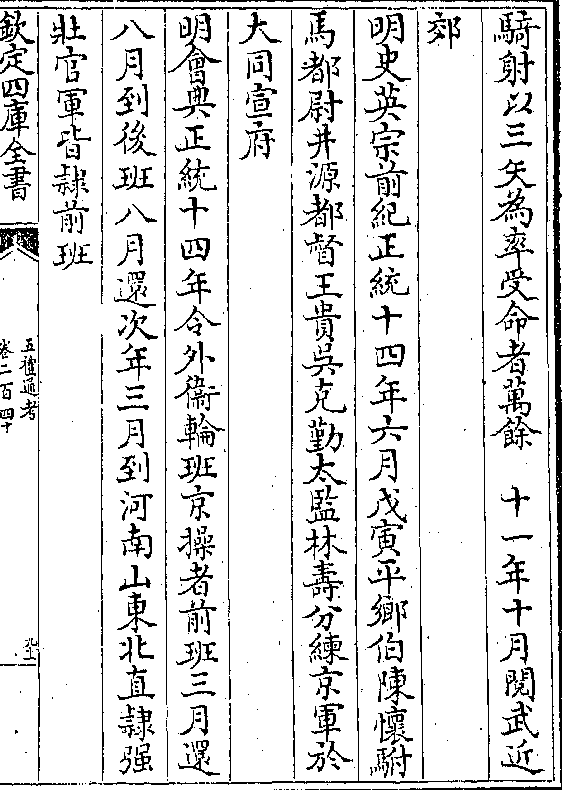 騎射以三矢為率受命者萬餘　十一年十月閱武近
郊
明史英宗前紀正統十四年六月戊寅平鄉伯陳懷駙
馬都尉井源都督王貴吳克勤太監林壽分練京軍於
大同宣府
明會典正統十四年令外衞輪班京操者前班三月還
八月到後班八月還次年三月到河南山東北直隸强
壯官軍皆隸前班
欽定四庫全書
五禮通考
卷二百四十